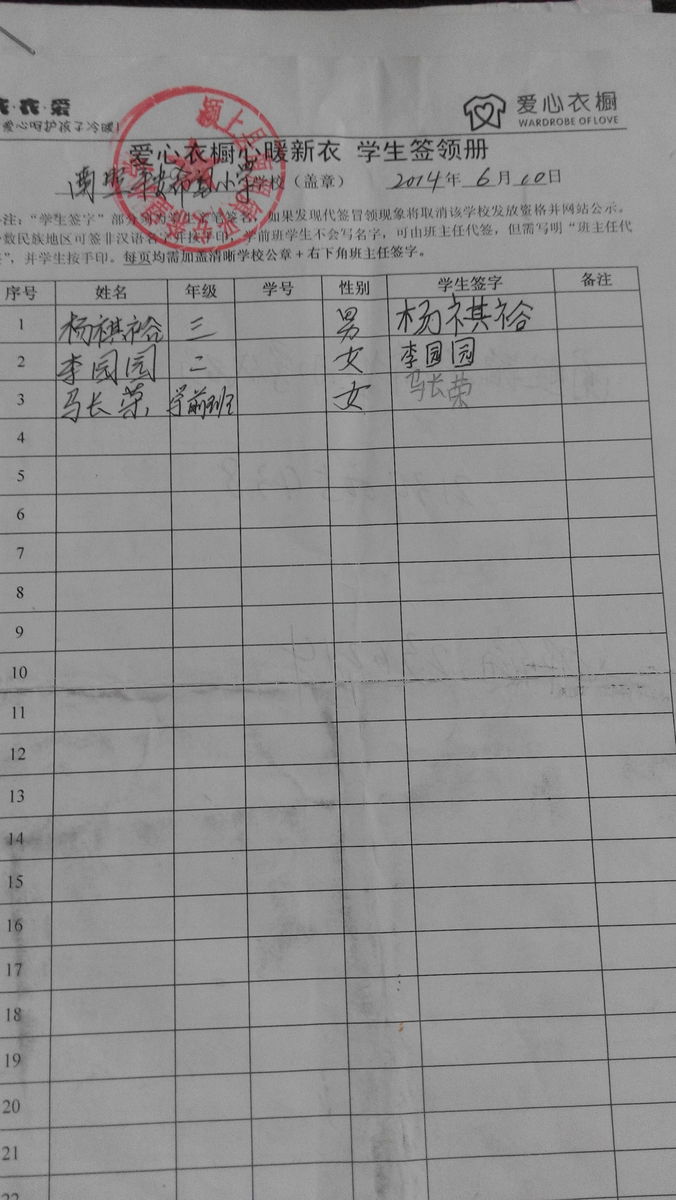 衣·衣·爱
爱心衣橱
爱心呵护孩子冷暖!
WARDROBE OF LOVE
爱心衣橱心暖新衣 学生签领册
小学学校（盖章） 2014年 6月10日
颍上县
注：“学生签字”部分 如果发现代签冒领现象将取消该学校发放资格并网站公示。
数民族地区可签非汉语名字并按手印。学前班学生不会写名字，可由班主任代签，但需写明“班主任代
”，并学生按手印。每页均需加盖清晰学校公章＋右下角班主任签字。
序号 姓名 年级 学号 性别 学生签字 备注
1 杨祺裕 三 男 杨祺裕
2 李园园 二 女 李园园
3 马长荣 学前班 女 马长荣
4
5
6
7
8
9
10
11
12
13
14
15
16
17
18
19
20
21
22